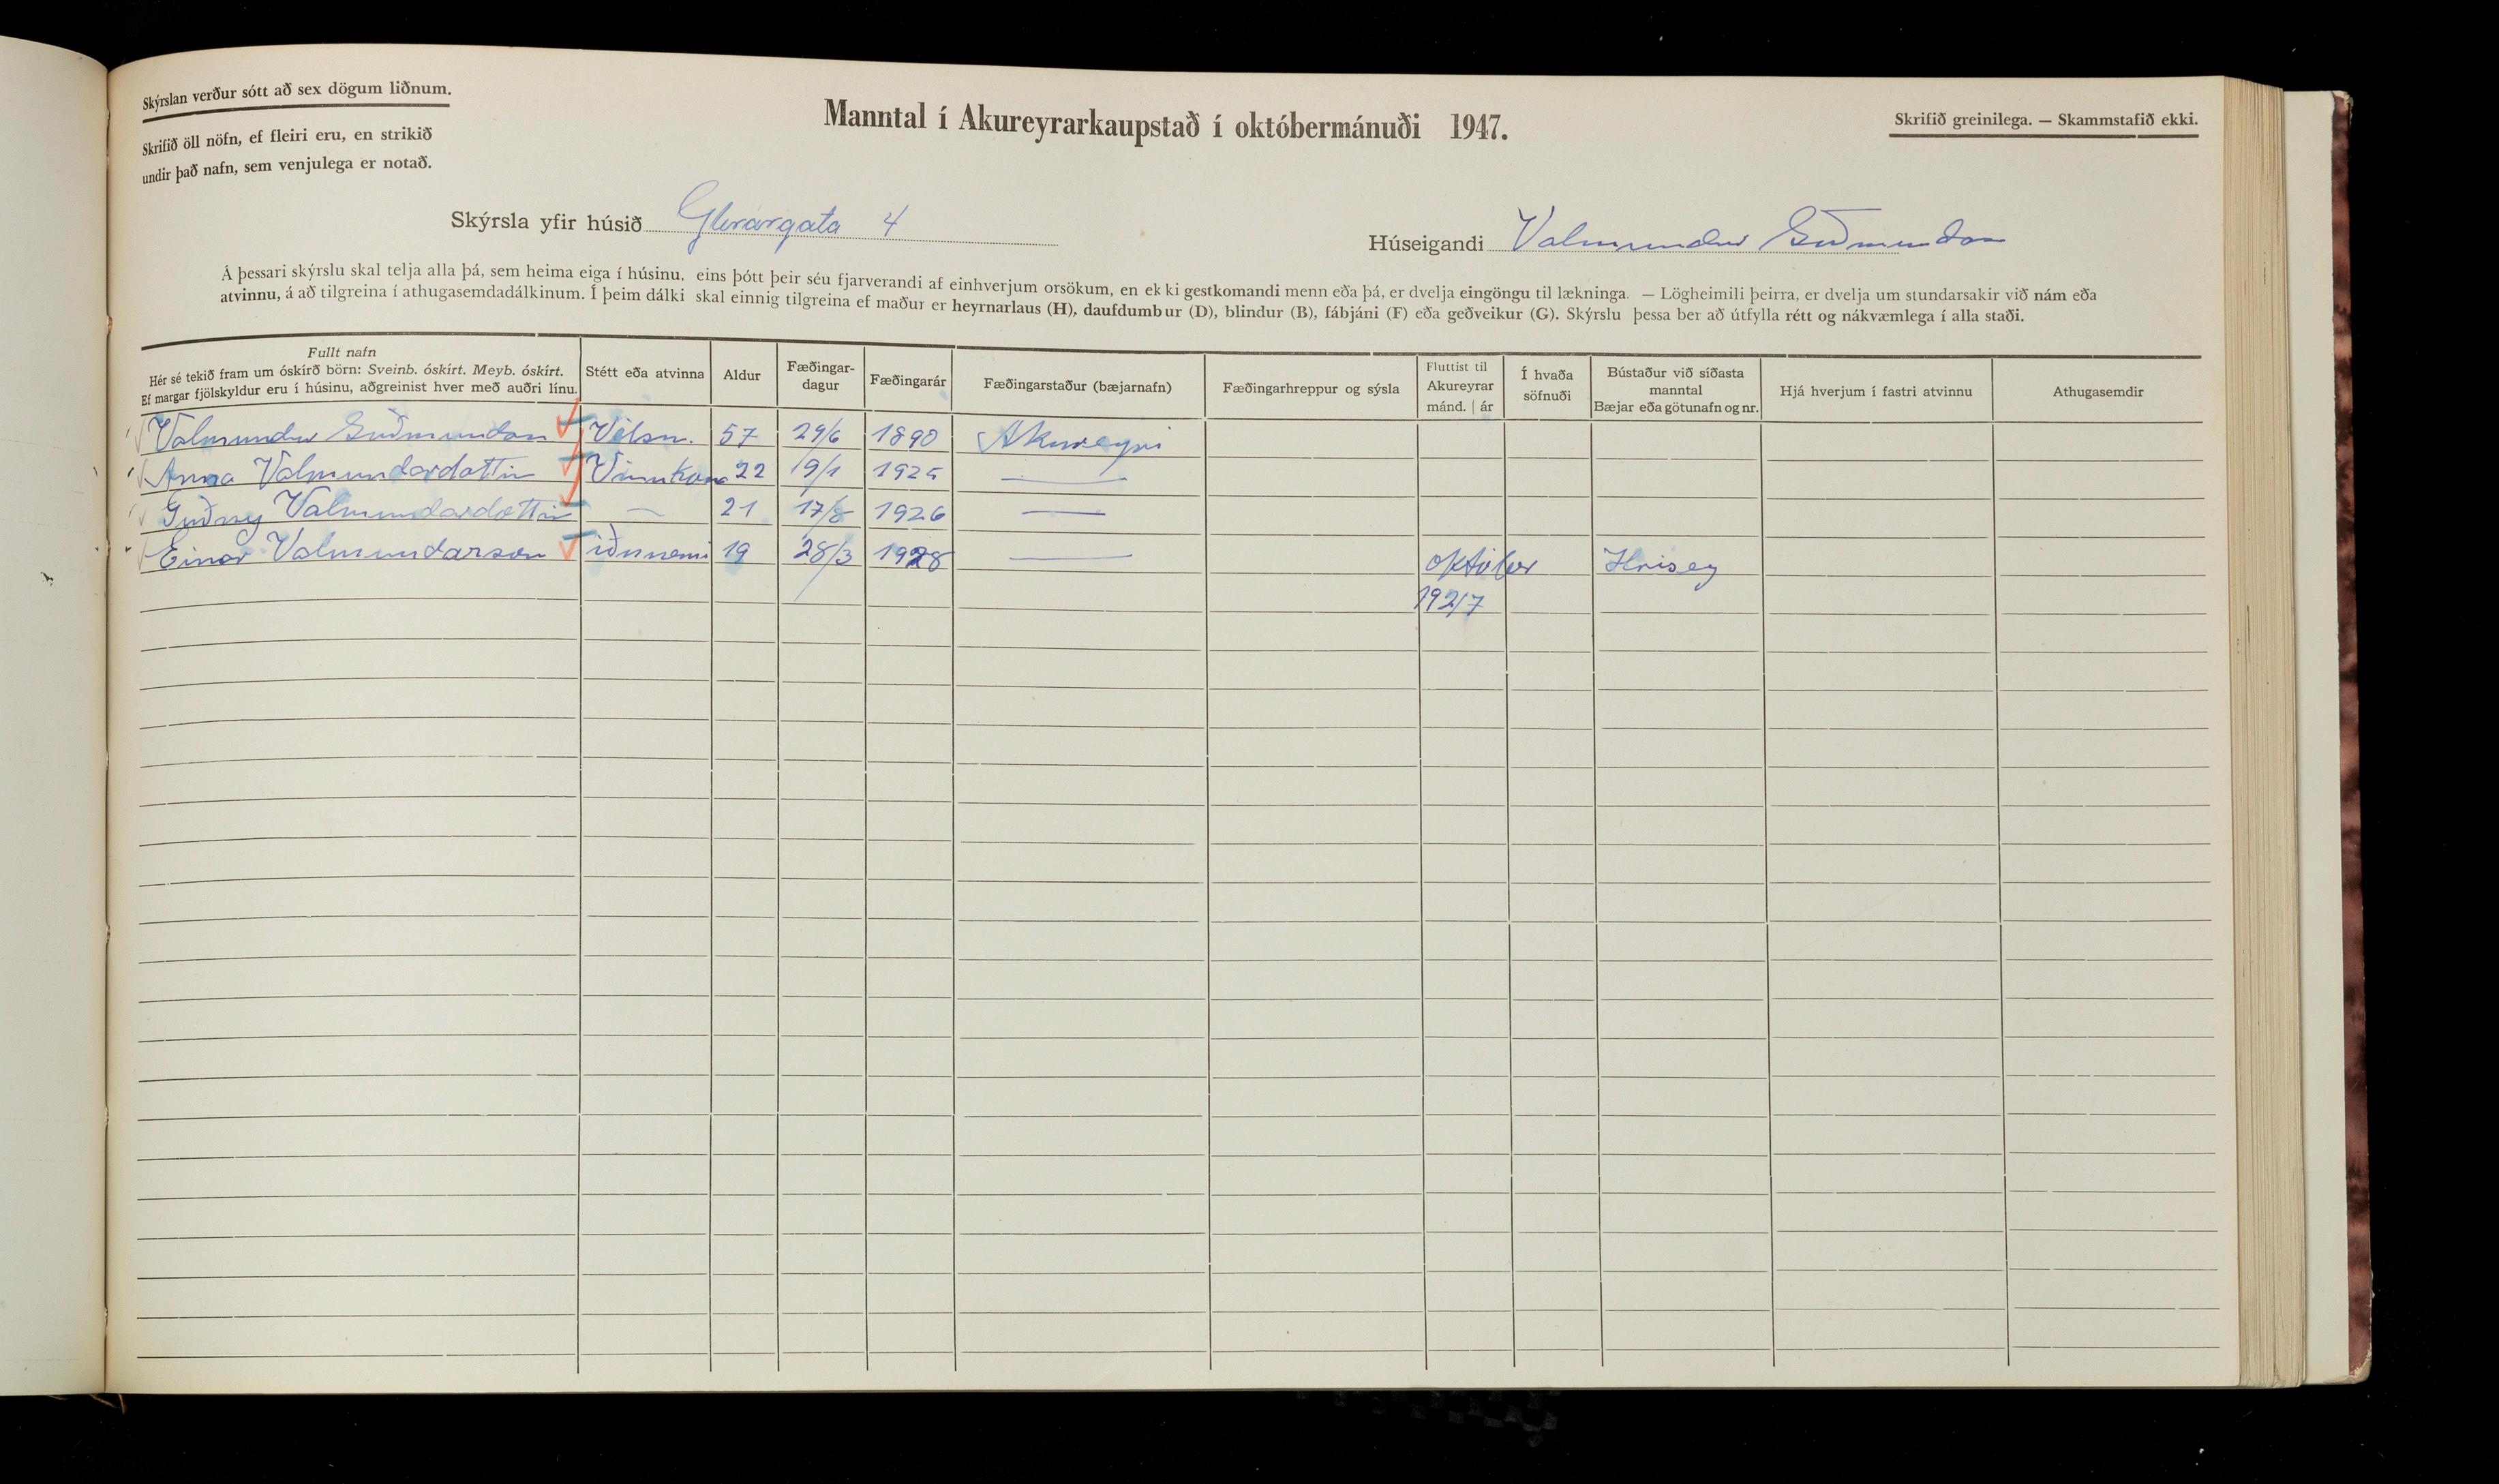 Skýrslan verður sótt að sex dögum liðnum.
Skrifið öll nöfn, ef fleiri eru, en strikið
undir það nafn, sem venjulega er notað.
Manntal í Akureyrarkaupstað í októbermánuði 1947.
Skrifið greinilega. — Skammstafið ekki.
Skýrsla yfir húsið Glerárgata 4
Húseigandi Valmundur Guðmundson
Á þessari skýrslu skal telja alla þá, sem heima eiga í húsinu, eins þótt þeir séu fjarverandi af einhverjum orsökum, en ekki gestkomandi menn eða þá, er dvelja eingöngu til lækninga. — Lögheimili þeirra, er dvelja um stundarsakir við nám eða
atvinnu, á að tilgreina í athugasemdadálkinum. Í þeim dálki skal einnig tilgreina ef maður er heyrnarlaus (H), daufdumbur (D), blindur (B), fábjáni (F) eða geðveikur (G). Skýrslu þessa ber að útfylla rétt og nákvæmlega í alla staði.
Fullt nafn
Hér sé tekið fram um óskírð börn: Sveinb. óskírt. Meyb. óskírt.
Ef margar fjölskyldur eru í húsinu, aðgreinist hver með auðri línu.
Stétt eða atvinna
Aldur
Fæðingar-
dagur
Fæðingarár
Fæðingarstaður (bæjarnafn)
Fæðingarhreppur og sýsla
Fluttist til
Akureyrar
mánd. | ár
Í hvaða
söfnuði
Bústaður við síðasta
manntal
Bæjar eða götunafn og nr.
Hjá hverjum í fastri atvinnu
Athugasemdir
Valmundur Guðmundson Vélsm. 57 29/6 1890 Akureyri
Anna Valmundardottir Vinnkona 22 19/1 1925 —
Guðny Valmundardottir — 21 17/8 1926 —
Einar Valmundarson iðnnemi 19 28/3 1928 — október Hrisey
1947